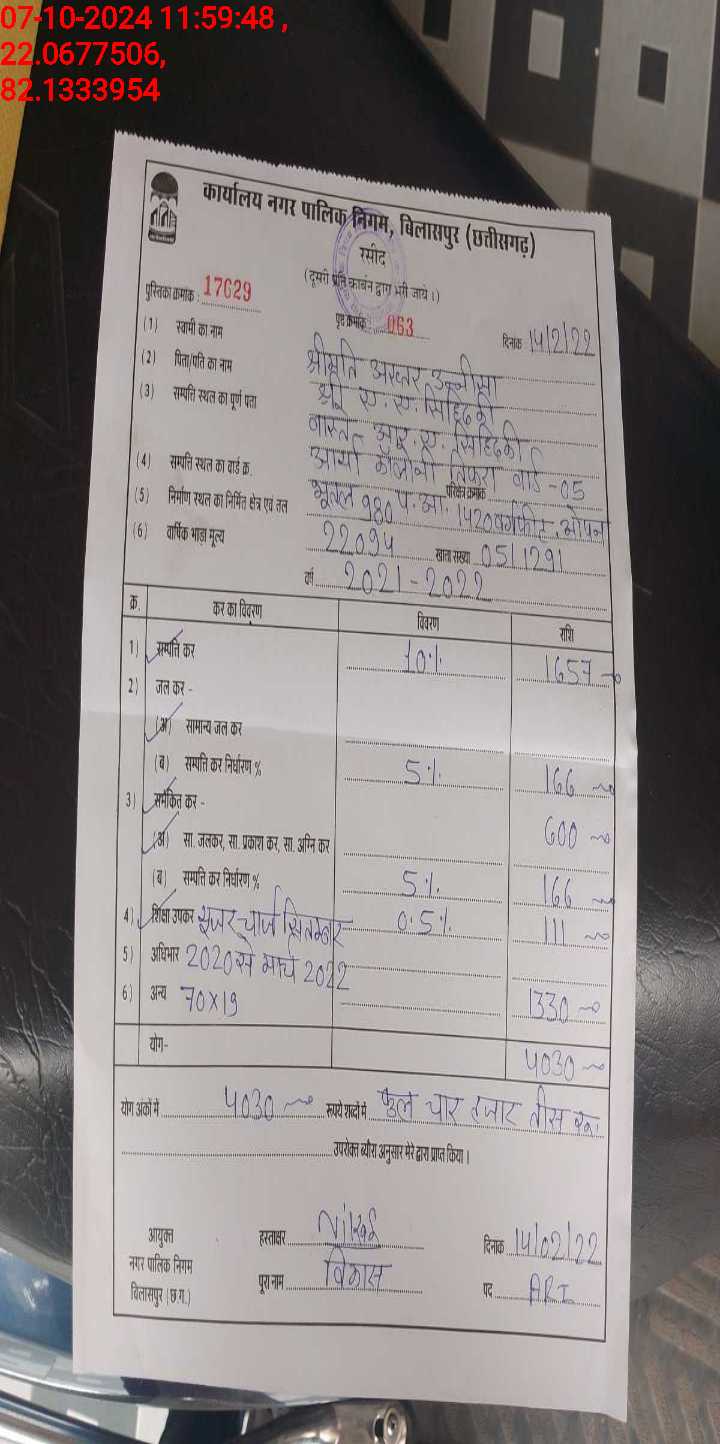 07-10-2024 11:59:48 ,
22.0677506,
82.1333954
कार्यालय नगर पालिक निगम, बिलासपुर (छत्तीसगढ़)
रसीद
(दूसरी प्रति कार्बन द्वारा भरी जाये।)
पुस्तिका क्रमांक : 17629
पृष्ठ क्रमांक : 063
दिनांक 14/2/22
(1) स्वामी का नाम श्रीमति अख्तर उन्नीसा
(2) पिता/पति का नाम श्री ए.ए. सिद्दिकी
(3) सम्पत्ति स्थल का पूर्ण पता आर.ए. सिद्दिकी
आर्या कॉलोनी तिफरा वार्ड -05
(4) सम्पत्ति स्थल का वार्ड क्र. परिक्षेत्र क्रमांक
(5) निर्माण स्थल का निर्मित क्षेत्र एवं तल भूतल 980 प.आ. 1420 वर्गफीट, ओपन
(6) वार्षिक भाड़ा मूल्य 22094 खाता संख्या 0511291
वर्ष 2021-2022
क्र. कर का विवरण विवरण राशि
1) सम्पत्ति कर 10% 1657
2) जल कर -
(अ) सामान्य जल कर
(ब) सम्पत्ति कर निर्धारण % 5% 166
3) समेकित कर - 600
(अ) सा. जलकर, सा. प्रकाश कर, सा. अग्नि कर
(ब) सम्पत्ति कर निर्धारण % 5% 166
4) शिक्षा उपकर यूजर चार्ज सितम्बर 0.5% 111
5) अधिभार 2020 से मार्च 2022
6) अन्य 70x19 1330
योग- 4030
योग अंकों में 4030 रूपये शब्दों में कुल चार हजार तीस रू.
उपरोक्त ब्यौरा अनुसार मेरे द्वारा प्राप्त किया।
आयुक्त हस्ताक्षर दिनांक 14/02/22
नगर पालिक निगम
बिलासपुर (छ.ग.) पूरा नाम विकास पद ARI